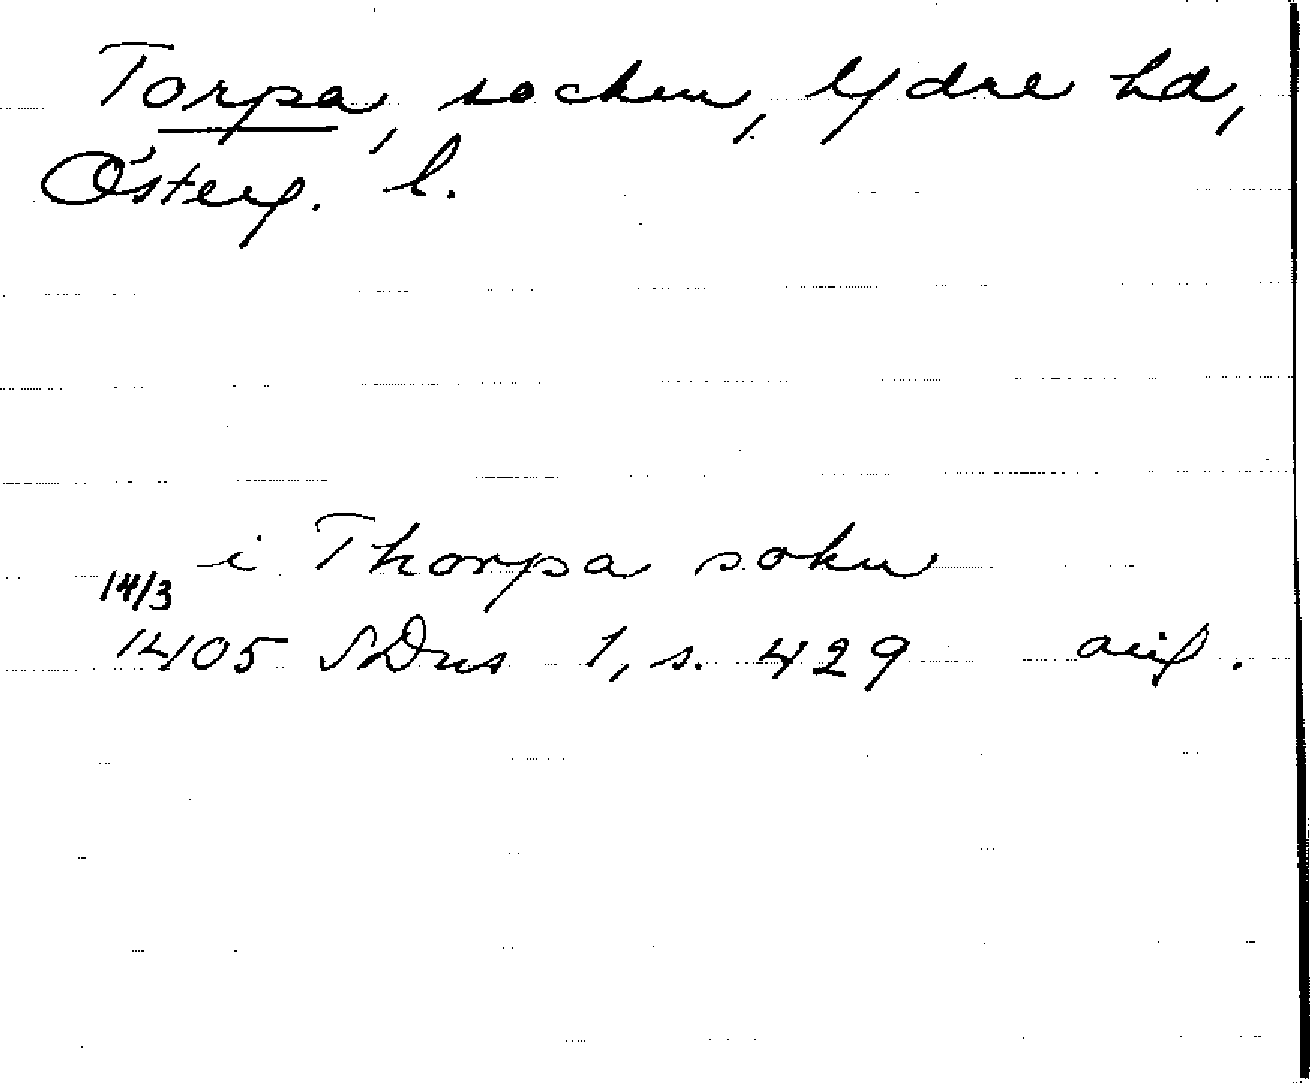 Torpa, socken, Ydre hd,
Österg. l.
i Thorpa sokn
14/3
1405 SDns 1, s. 429 avig.